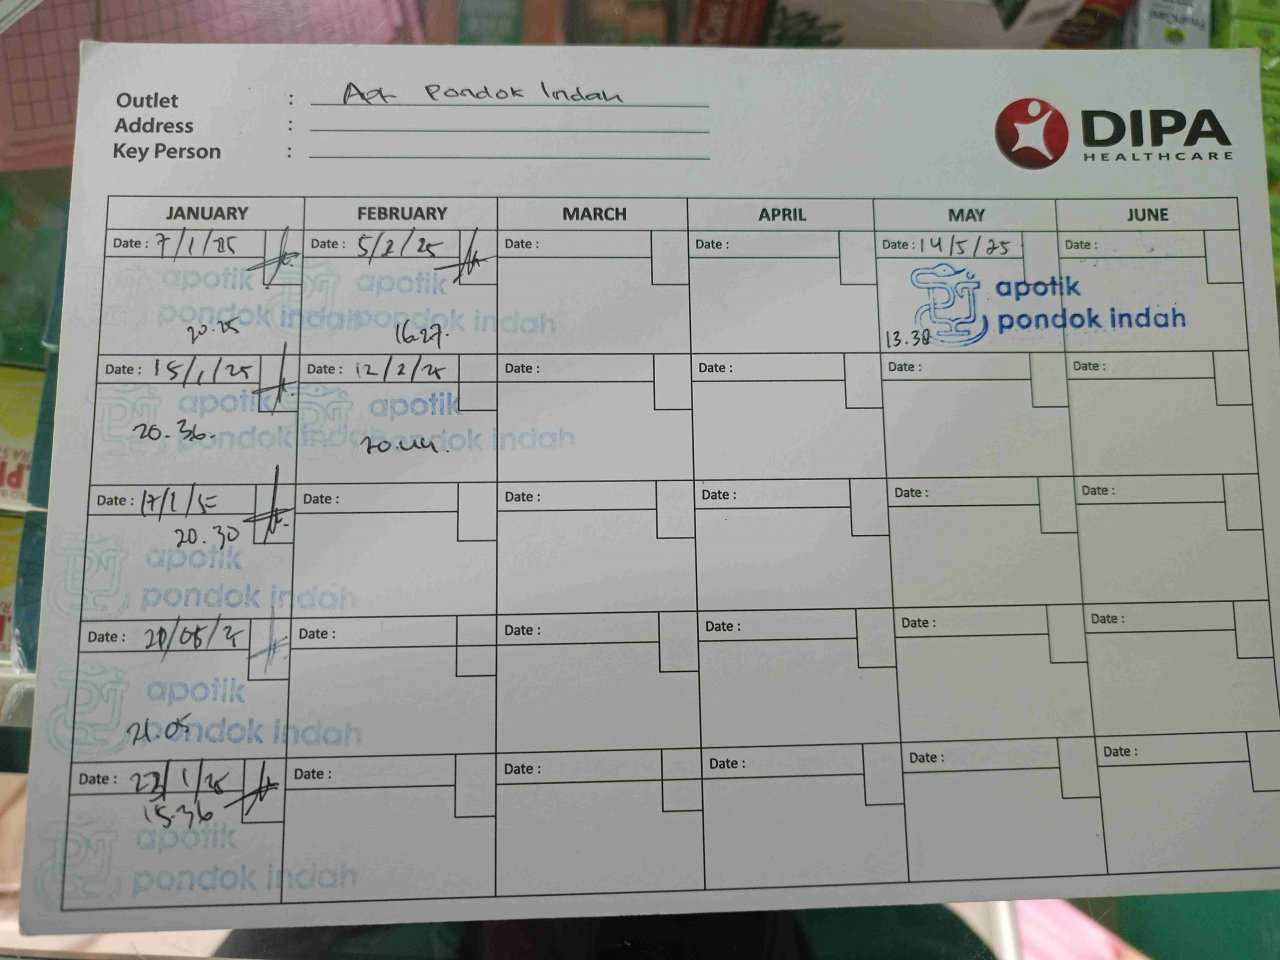 Outlet : Apt Pondok Indah
Address :
Key Person :
DIPA
HEALTHCARE
JANUARY FEBRUARY MARCH APRIL MAY JUNE
Date : 7/1/25 Date : 5/2/25 Date : Date : Date : 14/5/25 Date :
apotik apotik apotik
pondok indah pondok indah pondok indah
20.25 16.27. 13.38
Date : 15/1/25 Date : 12/2/25 Date : Date : Date : Date :
apotik apotik
20.36. pondok indah pondok indah
20.44.
Date : Date : Date : Date : Date : Date :
20.30
apotik
pondok indah
Date : Date : Date : Date : Date : Date :
apotik
21.05 pondok indah
Date : 23/1/25 Date : Date : Date : Date : Date :
15.36
apotik
pondok indah